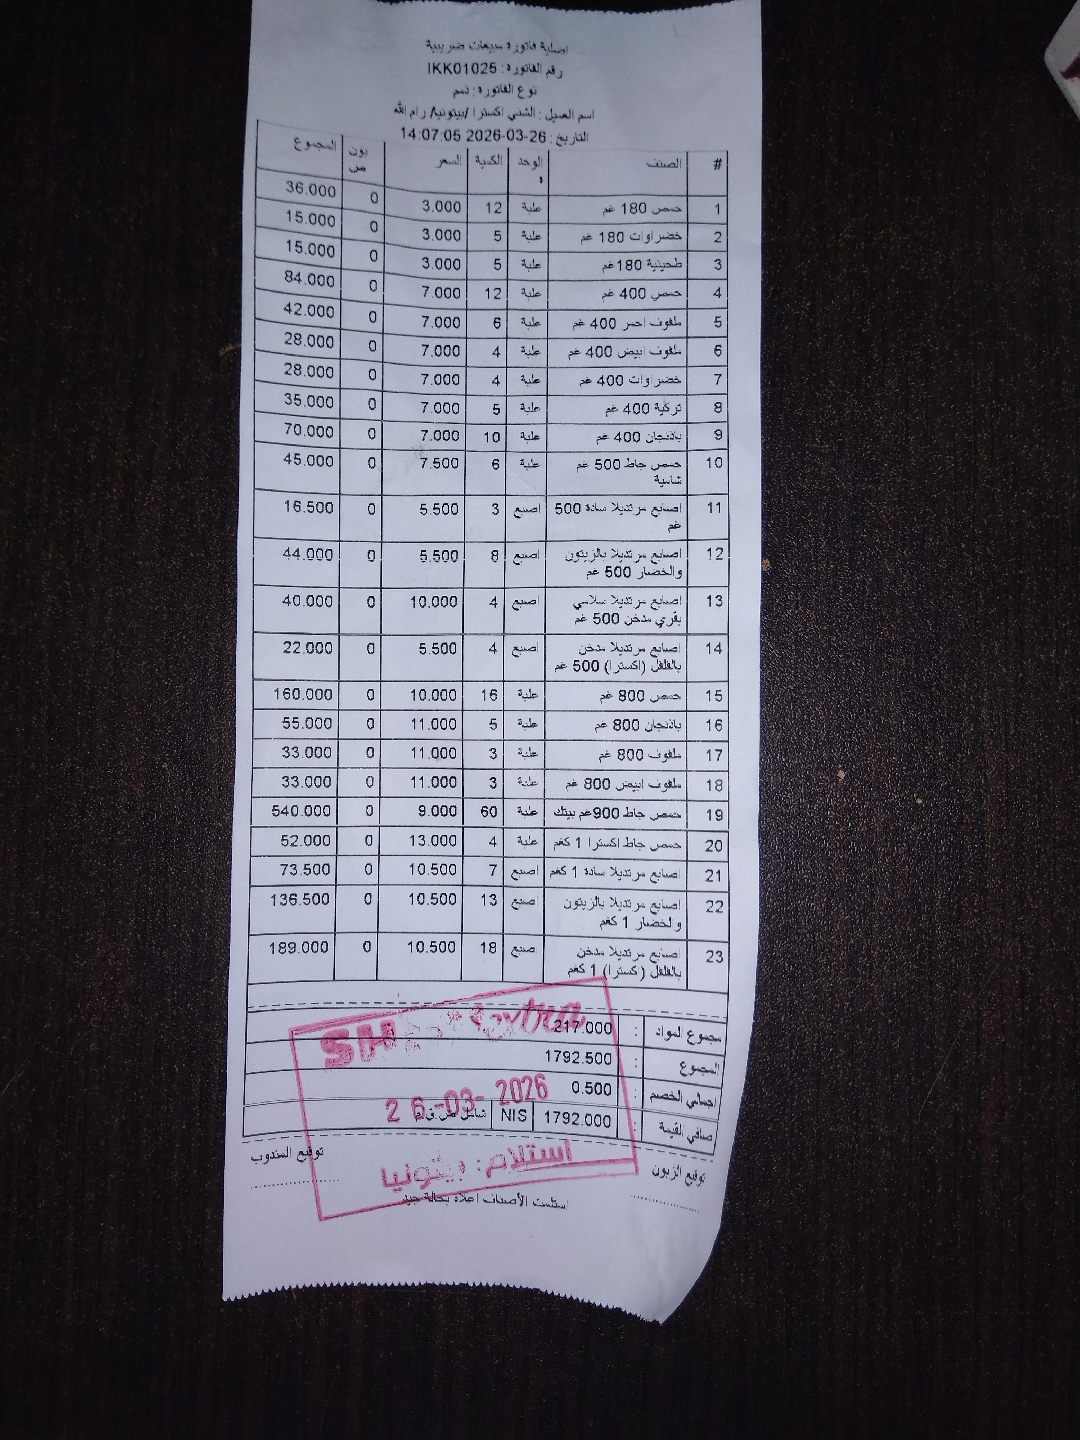 اصلية فاتورة مبيعات ضريبية
رقم الفاتورة : IKK01025
نوع الفاتورة : ذمم
اسم العميل : الشني اكسترا /بيتونيا/ رام الله
التاريخ : 26-03-2026 14:07:05
# الصنف الوحدة الكمية السعر بونص المجموع
1 حمص 180 غم علبة 12 3.000 0 36.000
2 خضراوات 180 غم علبة 5 3.000 0 15.000
3 طحينية 180غم علبة 5 3.000 0 15.000
4 حمص 400 غم علبة 12 7.000 0 84.000
5 ملفوف احمر 400 غم علبة 6 7.000 0 42.000
6 ملفوف ابيض 400 غم علبة 4 7.000 0 28.000
7 خضراوات 400 غم علبة 4 7.000 0 28.000
8 تركية 400 غم علبة 5 7.000 0 35.000
9 باذنجان 400 غم علبة 10 7.000 0 70.000
10 حمص جاط 500 غم علبة 6 7.500 0 45.000
شامية
11 اصابع مرتديلا سادة 500 اصبع 3 5.500 0 16.500
غم
12 اصابع مرتديلا بالزيتون اصبع 8 5.500 0 44.000
والخضار 500 غم
13 اصابع مرتديلا سلامي اصبع 4 10.000 0 40.000
بقري مدخن 500 غم
14 اصابع مرتديلا مدخن اصبع 4 5.500 0 22.000
بالفلفل (اكسترا) 500 غم
15 حمص 800 غم علبة 16 10.000 0 160.000
16 باذنجان 800 غم علبة 5 11.000 0 55.000
17 ملفوف 800 غم علبة 3 11.000 0 33.000
18 ملفوف ابيض 800 غم علبة 3 11.000 0 33.000
19 حمص جاط 900غم بيتك علبة 60 9.000 0 540.000
20 حمص جاط اكسترا 1 كغم علبة 4 13.000 0 52.000
21 اصابع مرتديلا سادة 1 كغم اصبع 7 10.500 0 73.500
22 اصابع مرتديلا بالزيتون اصبع 13 10.500 0 136.500
والخضار 1 كغم
23 اصابع مرتديلا مدخن اصبع 18 10.500 0 189.000
بالفلفل (اكسترا) 1 كغم
مجموع المواد : 217.000
المجموع : 1792.500
اجمالي الخصم : 0.500
صافي القيمة : 1792.000 NIS شامل ض.ق.م
extra
26-03-2026
استلام: بيتونيا
توقيع الزبون توقيع المندوب
استلمت الأصناف اعلاه بحالة جيد